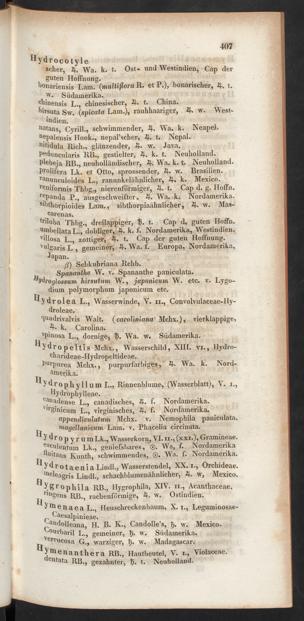 407
Hydrocotyle
acher, ♃. Wa. k. t. Ost- und Westindien, Cap der
guten Hoffnung.
bonariensis Lam. (multiflora R. et P.), bonarischer, ♃. t.
w. Südamerika.
chinensis L., chinesischer, ♃. t. China.
hirsuta Sw. (spicata Lam.), rauhhaariger, ♃. w. West-
indien.
natans, Cyrill., schwimmender, ♃. Wa. k. Neapel.
nepalensis Hook., nepal'scher, ♃. t. Nepal.
nitidula Rich., glänzender, ♃. w. Java.
peduncularis RB., gestielter, ♃. k. t. Neuholland.
plebeja RB., neuholländischer, ♃. Wa. k. t. Neuholland.
prolifera Lk. et Otto, sprossender, ♃. w. Brasilien.
ranunculoides L., ranunkelähnlicher, ♃. k. Mexico.
reniformis Thbg., nierenförmiger, ♃. t. Cap d. g. Hoffn.
repanda P., ausgeschweifter, ♃. Wa. k. Nordamerika.
sibthorpioides Lam., sibthorpienähnlicher, ♃. w. Mas-
carenas.
triloba Thbg., dreilappiger, ♄. t. Cap d. guten Hoffn.
umbellata L., doldiger, ♃. k. f. Nordamerika, Westindien.
villosa L., zottiger, ♃. t. Cap der guten Hoffnung.
vulgaris L., gemeiner, ♃. Wa. f. Europa, Nordamerika,
Japan.
β) Schkuhriana Rchb.
Spananthe W. v. Spananthe paniculata.
Hydroglossum hirsutum W., japonicum W. etc. v. Lygo-
dium polymorphum japonicum etc.
Hydrolea L., Wasserwinde, V. II., Convolvulaceae-Hy-
droleae.
quadrivalvis Walt. (caroliniana Mchx.), vierklappige,
♃. k. Carolina.
spinosa L., dornige, ♄. Wa. w. Südamerika.
Hydropeltis Mchx., Wasserschild, XIII. VI., Hydro-
charideae-Hydropeltideae.
purpurea Mchx., purpurfarbiges, ♃. Wa. k. Nord-
amerika.
Hydrophyllum L., Rinnenblume, (Wasserblatt), V. I.,
Hydrophylleae.
canadense L., canadisches, ♃. f. Nordamerika.
virginicum L., virginisches, ♃. f. Nordamerika.
appendiculatum Mchx. v. Nemophila paniculata.
magellanicum Lam. v. Phacelia circinata.
Hydropyrum Lk., Wasserkorn, VI. II., (XXI.), Gramineae.
esculentum Lk., geniefsbares, ☉. Ws, f. Nordamerika
fluitans Kunth, schwimmendes, ☉. Wa. f. Nordamerika.
Hydrotaenia Lindl., Wasserstendel, XX. I., Orchideae.
meleagris Lindl., schachblumenähnlicher, ♃. w. Mexico.
Hygrophila RB., Hygrophila, XIV. II., Acanthaceae.
ringens RB., rachenförmige, ♃. w. Ostindien.
Hymenaea L., Heuschreckenbaum, X. I., Leguminosae-
Caesalpinieae.
Candolleana, H. B. K., Candolle's, ♄. w. Mexico.
Courbaril L., gemeiner, ♄. w. Südamerika.
verrucosa G., warziger, ♄. w. Madagascar.
Hymenanthera RB., Hautbeutel, V. I., Violaceae.
dentata RB., gezahnter, ♄. t. Neuholland.